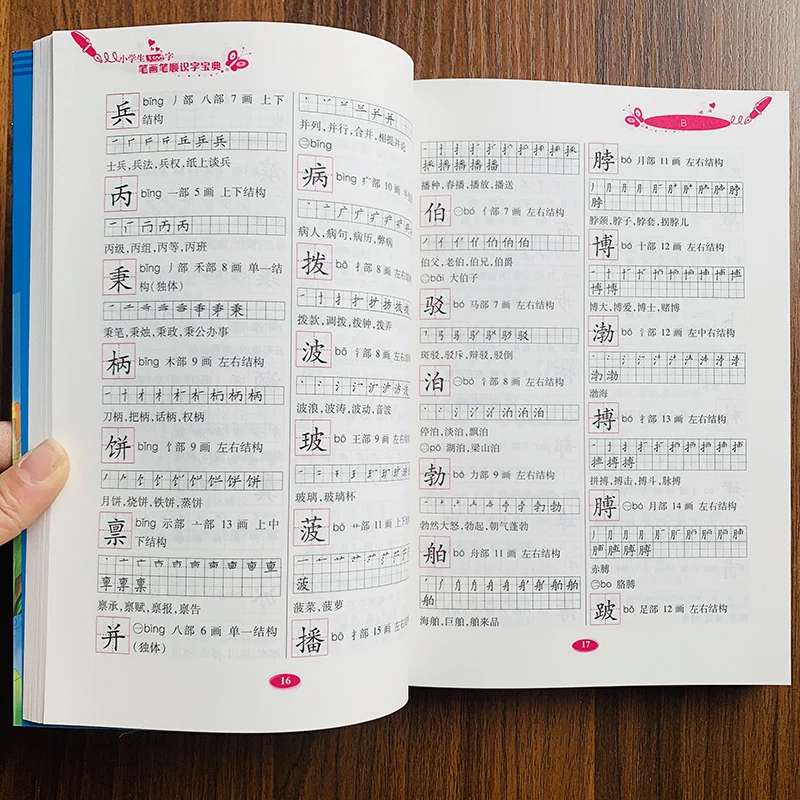 小学生
字
笔画笔顺识字宝典
兵 bīng 丿部 八部 7 画 上下
结构
士兵,兵法,兵权,纸上谈兵
丙 bǐng 一部 5 画 上下结构
丙级,丙组,丙等,丙班
秉 bǐng 丿部 禾部 8 画 单一结
构(独体)
秉笔,秉烛,秉政,秉公办事
柄 bǐng 木部 9 画 左右结构
刀柄,把柄,话柄,权柄
饼 bǐng 饣部 9 画 左右结构
月饼,烧饼,铁饼,蒸饼
禀 bǐng 示部 亠部 13 画 上中
下结构
禀承,禀赋,禀报,禀告
并 ㊀bìng 八部 6 画 单一结构
(独体)
并列,并行,合并,相提并论
㊁bīng
病 bìng 疒部 10 画
病人,病句,病历,弊病
拨 bō 扌部 8 画 左右
拨款,调拨,拨钟,拨弄
波 bō 氵部 8 画 左右
波浪,波涛,波动,音波
玻 bō 王部 9 画 左右结
玻璃,玻璃杯
菠 bō 艹部 11 画 上下
菠菜,菠萝
播 bō 扌部 15 画 左右
16
B
播种,春播,播放,播送
伯 ㊀bó 亻部 7 画 左右结构
伯父,老伯,伯兄,伯爵
㊁bǎi 大伯子
驳 bó 马部 7 画 左右结构
斑驳,驳斥,辩驳,驳倒
泊 ㊀bó 氵部 8 画 左右结构
停泊,淡泊,飘泊
㊁pō 湖泊,梁山泊
勃 bó 力部 9 画 左右结构
勃然大怒,勃起,朝气蓬勃
舶 bó 舟部 11 画 左右结构
海舶,巨舶,舶来品
脖 bó 月部 11 画 左右结构
脖颈,脖子,脖套,拐脖儿
博 bó 十部 12 画 左右结构
博大,博爱,博士,赌博
渤 bó 氵部 12 画 左中右结构
渤海
搏 bó 扌部 13 画 左右结构
拼搏,搏击,搏斗,脉搏
膊 ㊀bó 月部 14 画 左右结构
赤膊
㊁bo 胳膊
跛 bǒ 足部 12 画 左右结构
17